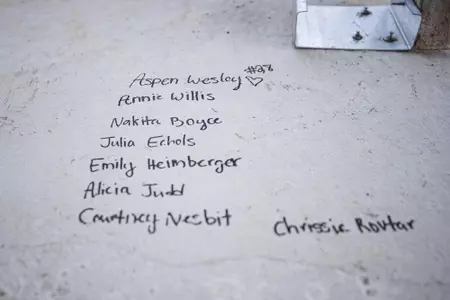 Aspen Wesley #28 ♡
Annie Willis
Nakita Boyce
Julia Echols
Emily Heimberger
Alicia Judd
Courtney Nesbit
Chrissie Routar